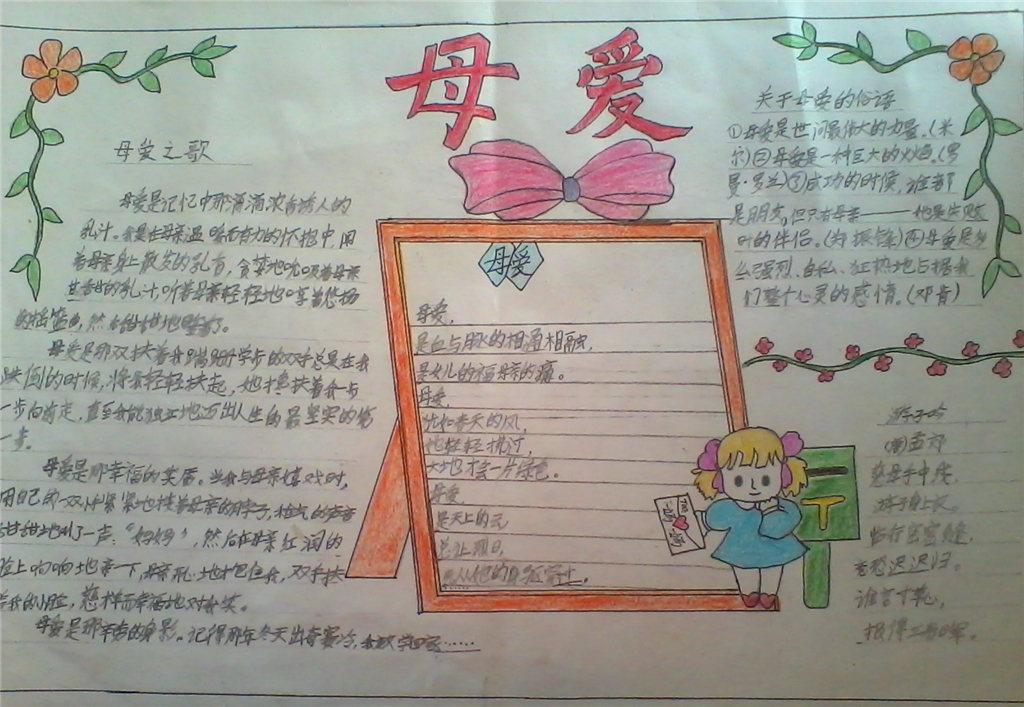 母爱
母爱之歌
母爱是记忆中那滴滴浓香诱人的
乳汁。我是在母亲温暖而有力的怀抱中,闻
着母亲身上散发的乳香,贪婪地吮吸着母亲
甘甜的乳汁,听着母亲轻轻地哼着悠扬
的摇篮曲,然后甜甜地睡着了。
母爱是那双扶着我蹒跚学步的双手总是在我
跌倒的时候,将我轻轻扶起,她才扶着我一步
一步向前走,直至我能独立地迈出人生的最坚实的第
一步。
母爱是那幸福的笑唇。当我与母亲嬉戏时,
用自己的一双小手紧紧地搂着母亲的脖子,
甜甜地叫了一声:“妈妈”,然后在母亲红润的
脸上响响地亲一下,母亲
着我的小脸,慈祥而幸福地对我笑。
母爱是那 的身影。记得那年冬天出奇寒冷,我放学回家……
母爱
母爱,
是血与脉的相通相融,
是女儿的福母亲的痛。
母爱,
就如春天的风,
她轻轻拂过,
大地才会一片绿意。
母爱,
是天上的云
总让烈日,
先从他的身躯穿过。
关于母爱的俗语
①母爱是世间最伟大的力量。(米
尔)②母爱是一种巨大的火焰。(罗
曼·罗兰)③成功的时候,谁都
是朋友,但只有母亲———她是失败
时的伴侣。(郑振铎)④母爱是多
么强烈、自私、狂热地占据我
们整个心灵的感情。(邓肯)
游子吟
(唐)孟郊
慈母手中线,
游子身上衣。
临行密密缝,
意恐迟迟归。
谁言寸草心,
报得三春晖。